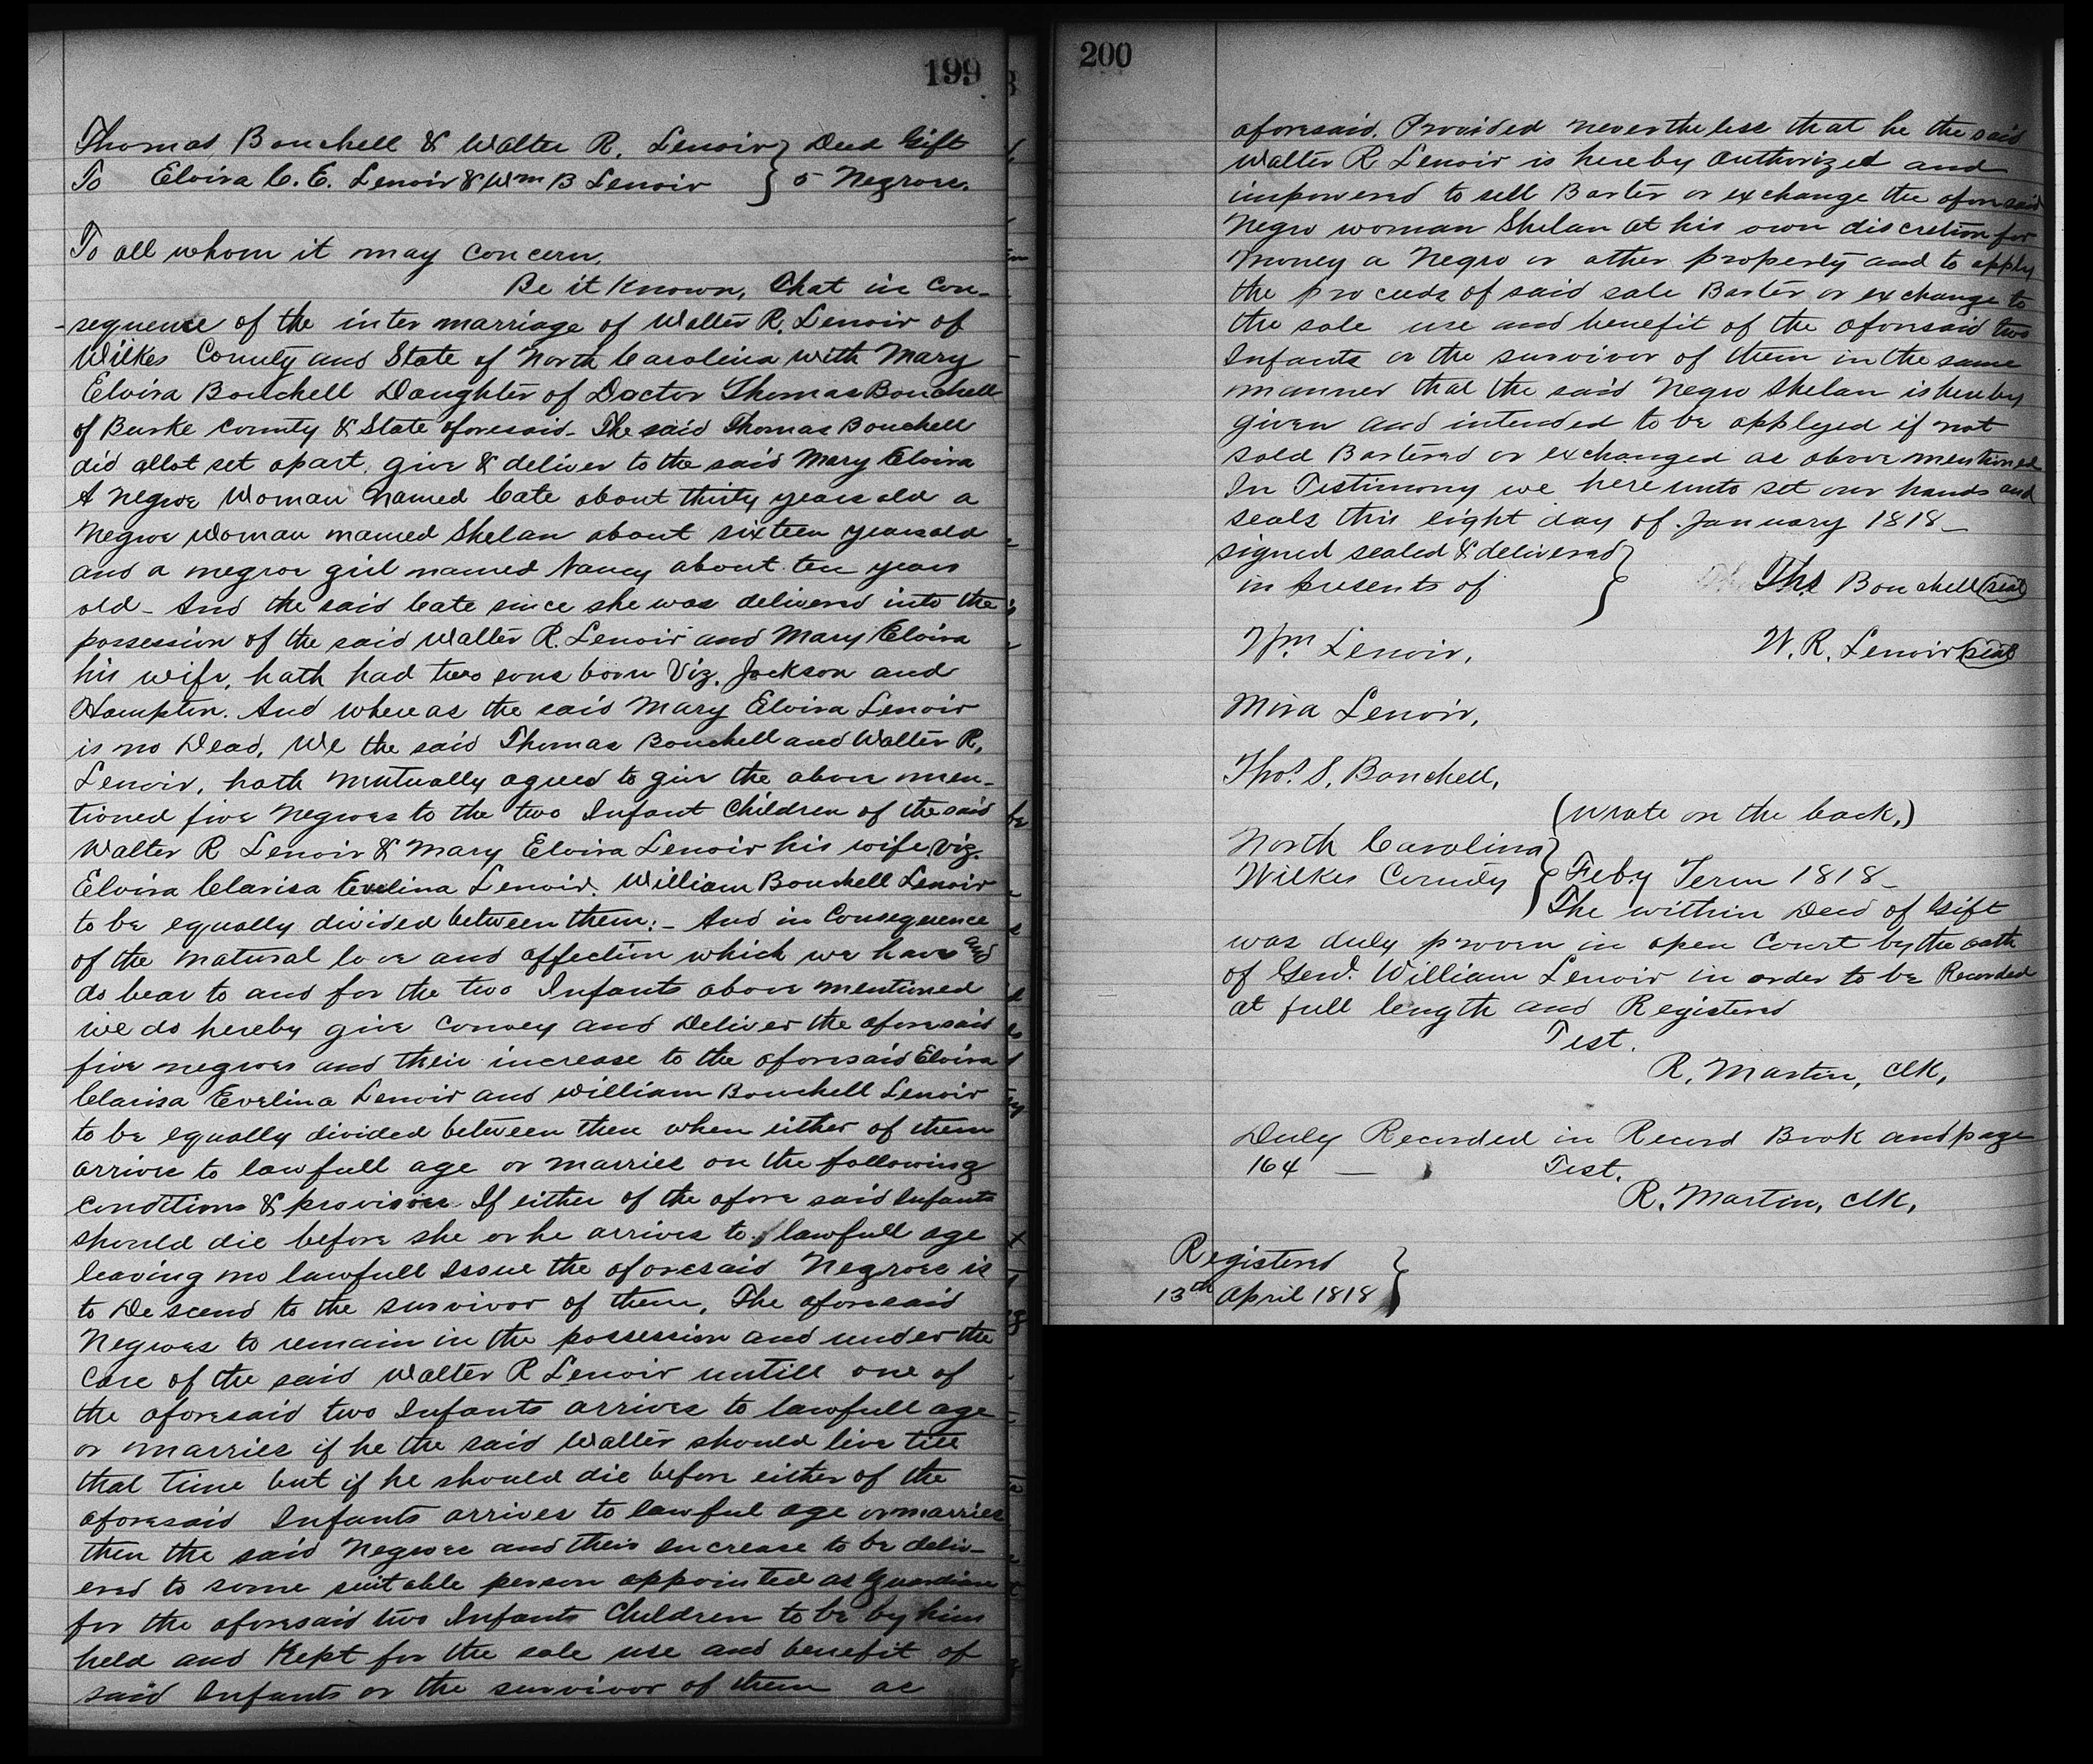 199
Thomas Bouchell & Walter R. Lenoir } Deed Gift
To Elvira C. E. Lenoir & Wm B Lenoir } 5 Negroes.
To all whom it may Concern.
Be it Known, That in Con-
-sequence of the inter marriage of Walter R. Lenoir of
Wilkes County and State of North Carolina with Mary
Elvira Bouchell Daughter of Doctor Thomas Bouchell
of Burke County & State aforesaid - The said Thomas Bouchell
did allot set apart, give & deliver to the said Mary Elvira
A negroe Woman named Cate about thirty years old a
Negroe Woman named Shelan about sixteen years old
and a negroe girl named Nancy about ten years
old - And the said Cate since she was delivered into the
possession of the said Walter R. Lenoir and Mary Elvira
his wife, hath had two sons born Viz. Jackson and
Hampton. And whereas the said Mary Elvira Lenoir
is no Dead, We the said Thomas Bouchell and Walter R.
Lenoir, hath mutually agreed to give the above men-
tioned five Negroes to the two Infant Children of the said
Walter R Lenoir & Mary Elvira Lenoir his wife, Viz.
Elvira Clarisa Evelina Lenoir. William Bouchell Lenoir
to be equally divided between them: - And in Consequence
of the natural love and affection which we have and
do bear to and for the two Infants above mentioned
we do hereby give Convey and Deliver the aforesaid
five negroes and their increase to the aforesaid Elvira
Clarisa Evelina Lenoir and William Bouchell Lenoir
to be equally divided between them when either of them
arrives to lawfull age or marries on the following
conditions & provisoes If either of the afore said Infants
should die before she or he arrives to lawfull age
leaving no lawfull Issue the aforesaid Negroes is
to Descend to the survivor of them, The aforesaid
Negroes to remain in the possession and under the
Care of the said Walter R Lenoir untill one of
the aforesaid two Infants arrives to lawfull age
or marries if he the said Walter should live till
that time but if he should die before either of the
aforesaid Infants arrives to lawful age or marries
then the said Negroes and their Increase to be deliv-
ered to some suitable person appointed as Guardian
for the aforesaid two Infants Children to be by him
held and Kept for the sole use and benefit of
said Infants or the survivor of them as
200
aforesaid. Provided nevertheless that he the said
Walter R Lenoir is hereby Authorized and
impowered to sell Barter or exchange the aforesaid
Negro woman Shelan at his own discretion for
money a Negro or other property and to apply
the proceeds of said sale Barter or exchange to
the sole use and benefit of the aforesaid two
Infants or the survivor of them in the same
manner that the said Negro Shelan is hereby
given and intended to be applyed if not
sold Bartered or exchanged as above mentioned
In Testimony we here unto set our hands and
seals this eight day of January 1818 -
signed sealed & delivered }
in presents of
Ths Bouchell (seal)
Wm Lenoir,
W. R. Lenoir (seal)
Mira Lenoir,
Thos. S. Bouchell,
(Wrote on the back.)
North Carolina }
Wilkes County } Feby Term 1818 -
The within Deed of Gift
was duly proven in open Court by the oath
of Genl. William Lenoir in order to be Recorded
at full length and Registered
Test.
R. Martin, Clk,
Duly Recorded in Record Book and page
164 — Test.
R. Martin, Clk,
Registered }
13th April 1818